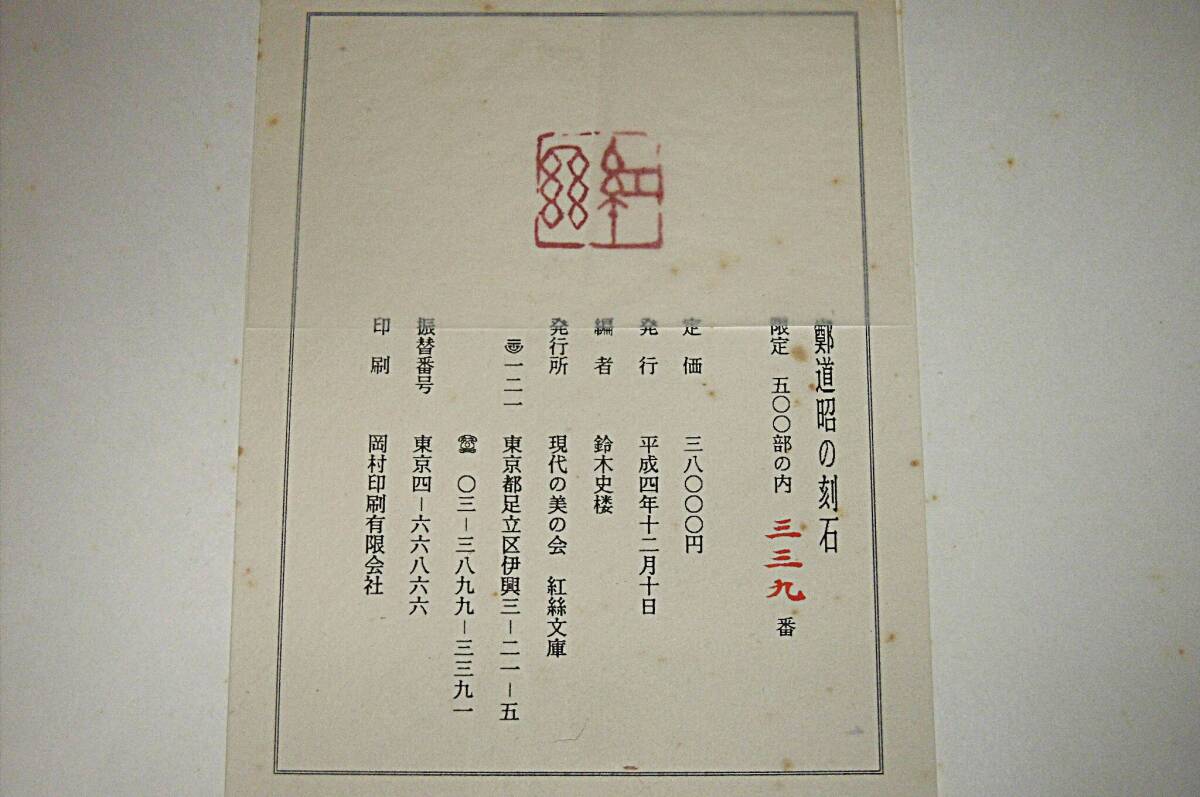 鄭道昭の刻石
限定 五〇〇部の内 三三九番
定価 三八〇〇〇円
発行 平成四年十二月十日
編者 鈴木史楼
発行所 現代の美の会 紅絲文庫
〠一二一 東京都足立区伊興三-二一-五
☎ 〇三-三八九九-三三九一
振替番号 東京四-六六八六六
印刷 岡村印刷有限会社